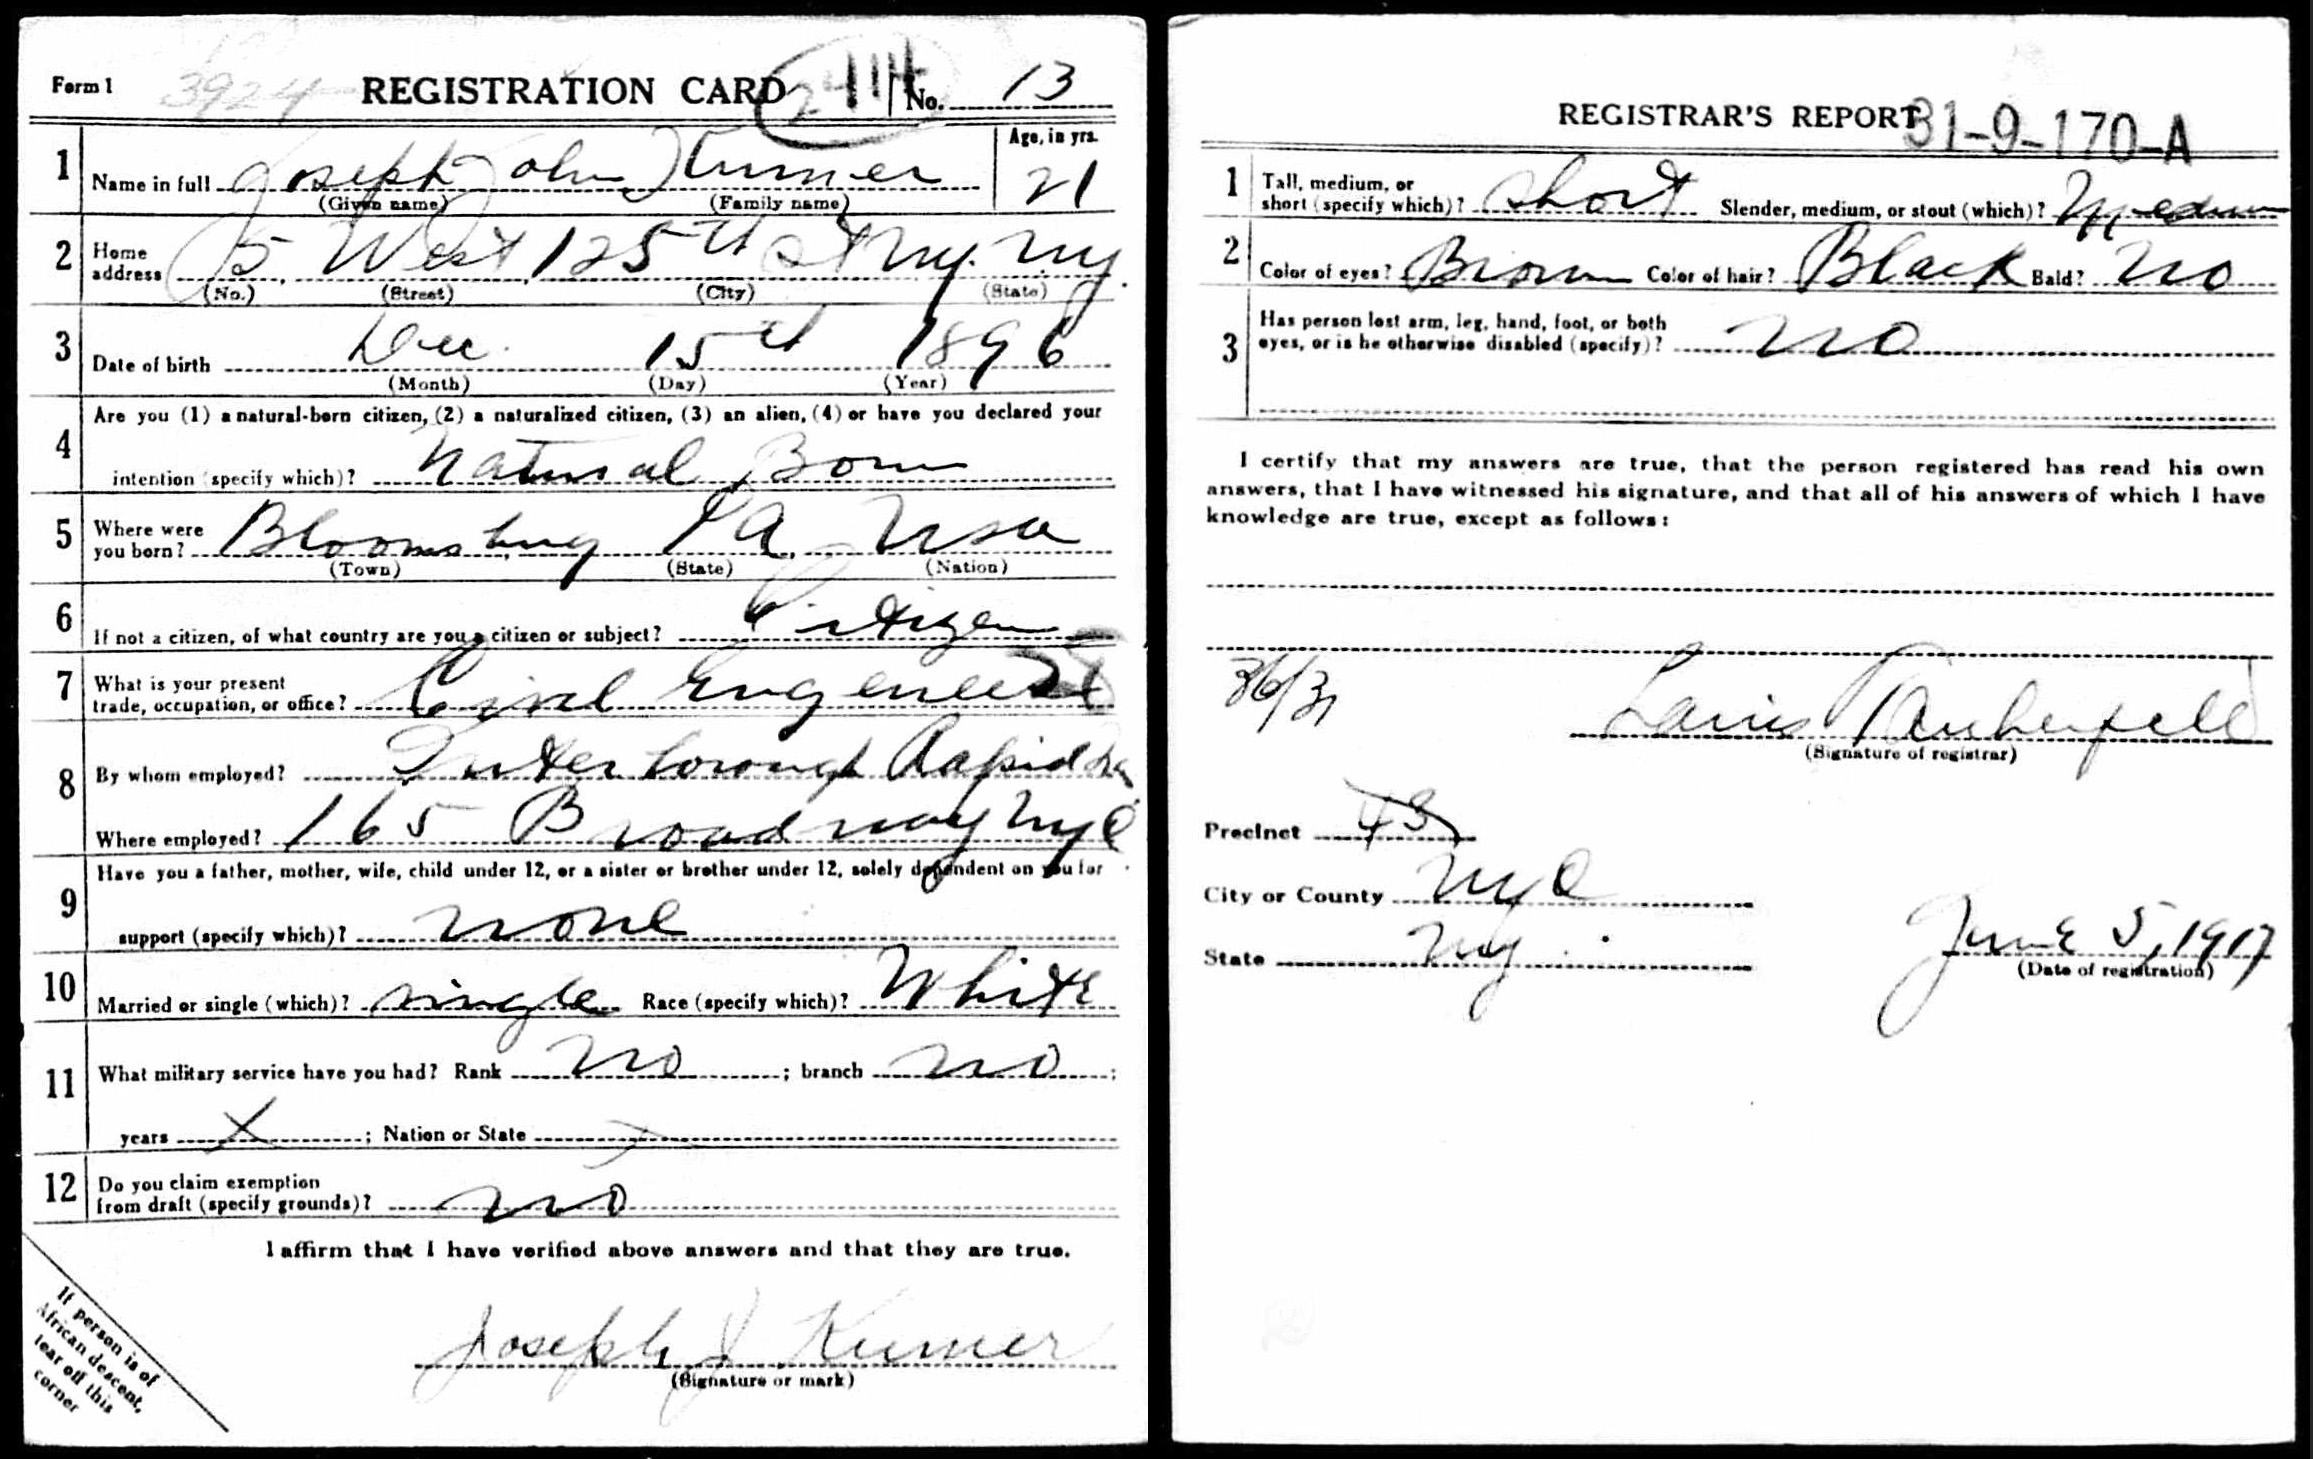 Form 1 3924 REGISTRATION CARD No. 13
1 Name in full Joseph John Kumer Age, in yrs. 21
(Given name) (Family name)
2 Home address 5 West 125th St N.Y. N.Y.
(No.) (Street) (City) (State)
3 Date of birth Dec. 15th 1896
(Month) (Day) (Year)
4 Are you (1) a natural-born citizen, (2) a naturalized citizen, (3) an alien, (4) or have you declared your
intention (specify which)? Natural Born
5 Where were you born? Bloomsburg PA. USA
(Town) (State) (Nation)
6 If not a citizen, of what country are you a citizen or subject? Citizen
7 What is your present
trade, occupation, or office? Civil Engeneer
8 By whom employed? Interborough Rapid
Where employed? 165 Broadway NYC
9 Have you a father, mother, wife, child under 12, or a sister or brother under 12, solely dependent on you for
support (specify which)? none
10 Married or single (which)? single Race (specify which)? White
11 What military service have you had? Rank no ; branch no ;
years X ; Nation or State
12 Do you claim exemption
from draft (specify grounds)? no
I affirm that I have verified above answers and that they are true.
Joseph J Kumer
(Signature or mark)
If person is of
African descent,
tear off this
corner
REGISTRAR'S REPORT 31-9-170-A
1 Tall, medium, or
short (specify which)? short Slender, medium, or stout (which)? Medium
2 Color of eyes? Brown Color of hair? Black Bald? no
3 Has person lost arm, leg, hand, foot, or both
eyes, or is he otherwise disabled (specify)? no
I certify that my answers are true, that the person registered has read his own
answers, that I have witnessed his signature, and that all of his answers of which I have
knowledge are true, except as follows:
Louis
(Signature of registrar)
Precinct 43
City or County NYC
State NY June 5, 1917
(Date of registration)